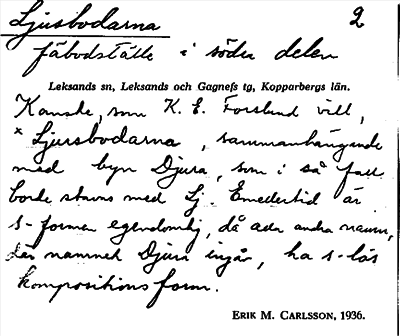 Ljusbodarna 2
fäbodställe i södra delen
Leksands sn, Leksands och Gagnefs tg, Kopparbergs län.
Kanske, som K. E. Forslund vill,
* Ljursbodarna, sammanhängande
med byn Djura, som i så fall
borde stavas med Lj. Emellertid är
s-formen egendomlig, då alla andra namn,
där namnet Djura ingår, ha s-lös
kompositionsform.
ERIK M. CARLSSON, 1936.